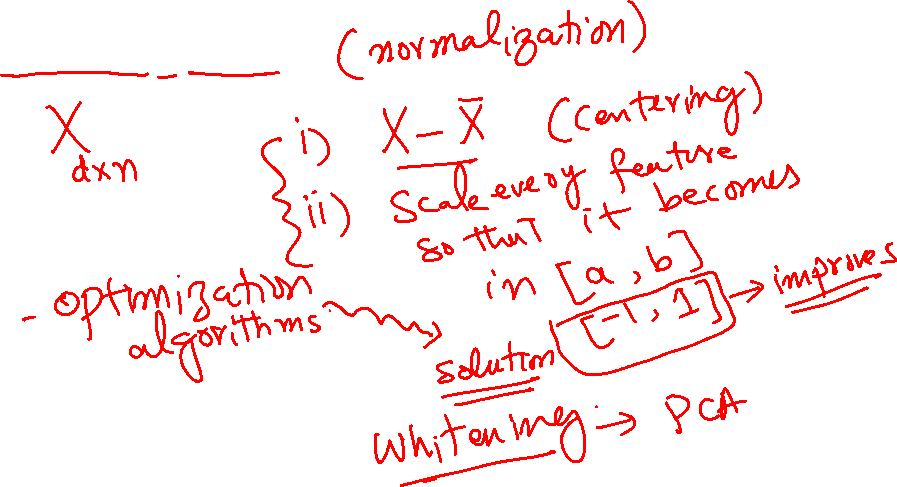 (normalization)
X
dxn
i) X - X̄ (centering)
ii) Scale every feature
so that it becomes
in [a, b]
[-1, 1] → improves
- optimization
algorithms
solution
Whitening → PCA